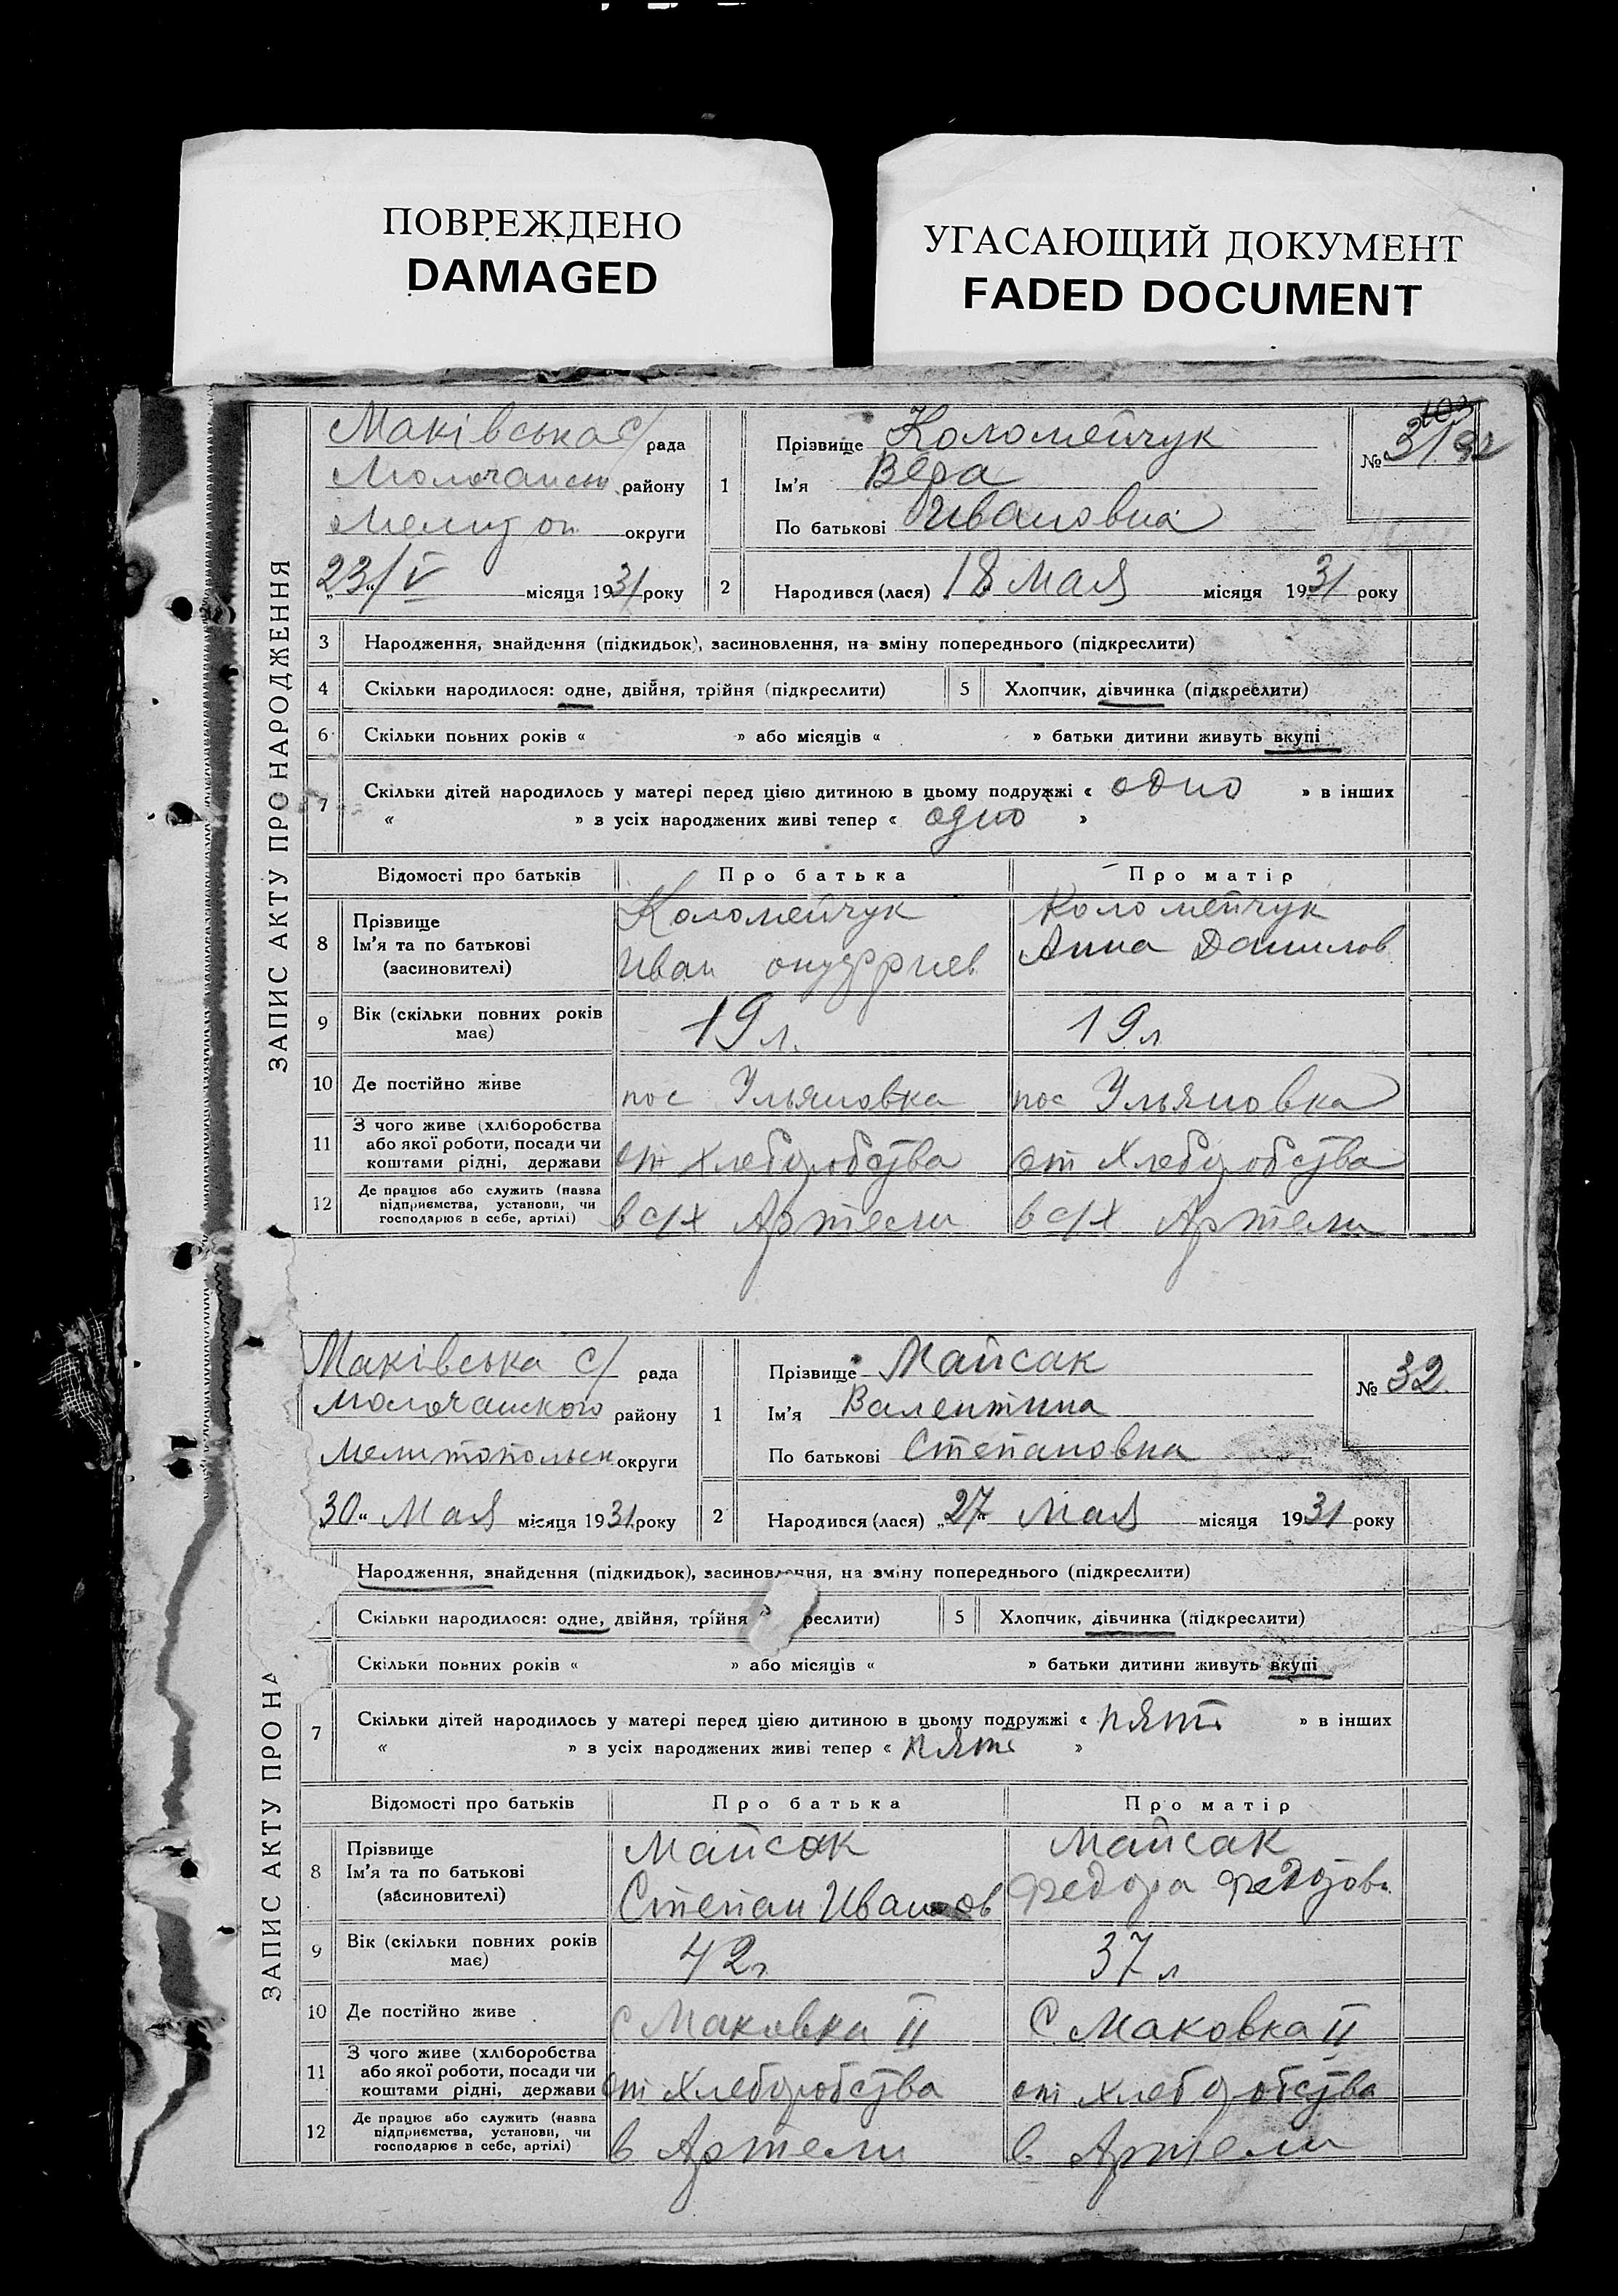 ПОВРЕЖДЕНО
DAMAGED
УГАСАЮЩИЙ ДОКУМЕНТ
FADED DOCUMENT
ЗАПИС АКТУ ПРО НАРОДЖЕННЯ
Маківська с/ рада
Молочанськ району
Мелитоп округи
„23/V місяця 1931 року
1
Прізвище Коломейчук
Ім'я Вера
По батькові Ивановна
103
№ 31 92
2 Народився (лася) 18 Мая місяця 1931 року
3 Народження, знайдення (підкидьок), засиновлення, на зміну попереднього (підкреслити)
4 Скільки народилося: одне, двійня, трійня (підкреслити) 5 Хлопчик, дівчинка (підкреслити)
6 Скільки повних років « » або місяців « » батьки дитини живуть вкупі
7 Скільки дітей народилось у матері перед цією дитиною в цьому подружжі « одно » в інших
« » з усіх народжених живі тепер « одно »
Відомості про батьків Про батька Про матір
8 Прізвище
Ім'я та по батькові
(засиновителі)
Коломейчук
Иван онуфриев
Коломейчук
Анна Данилов
9 Вік (скільки повних років
має)
19 л. 19 л
10 Де постійно живе пос Ульяновка пос Ульяновка
11 З чого живе (хліборобства
або якої роботи, посади чи
коштами рідні, держави
от хлеборобства от хлеборобства
12 Де працює або служить (назва
підприємства, установи, чи
господарює в себе, артілі)
в с/х Артели в с/х Артели
ЗАПИС АКТУ ПРО НА
Маківська с/ рада
Молочанского району
Мелитопольск округи
„30“ Мая місяця 1931 року
1
Прізвище Майсак
Ім'я Валентина
По батькові Степановна
№ 32
2 Народився (лася) „27“ Мая місяця 1931 року
Народження, знайдення (підкидьок), засиновлення, на зміну попереднього (підкреслити)
Скільки народилося: одне, двійня, трійня реслити) 5 Хлопчик, дівчинка (підкреслити)
Скільки повних років « » або місяців « » батьки дитини живуть вкупі
7 Скільки дітей народилось у матері перед цією дитиною в цьому подружжі « пять » в інших
« » з усіх народжених живі тепер « пять »
Відомості про батьків Про батька Про матір
8 Прізвище
Ім'я та по батькові
(засиновителі)
Майсак
Степан Иванов
Майсак
Федора
9 Вік (скільки повних років
має)
42 л 37 л
10 Де постійно живе с Маковка II с Маковка II
11 З чого живе (хліборобства
або якої роботи, посади чи
коштами рідні, держави
от хлеборобства от хлеборобства
12 Де працює або служить (назва
підприємства, установи, чи
господарює в себе, артілі)
в Артели в Артели